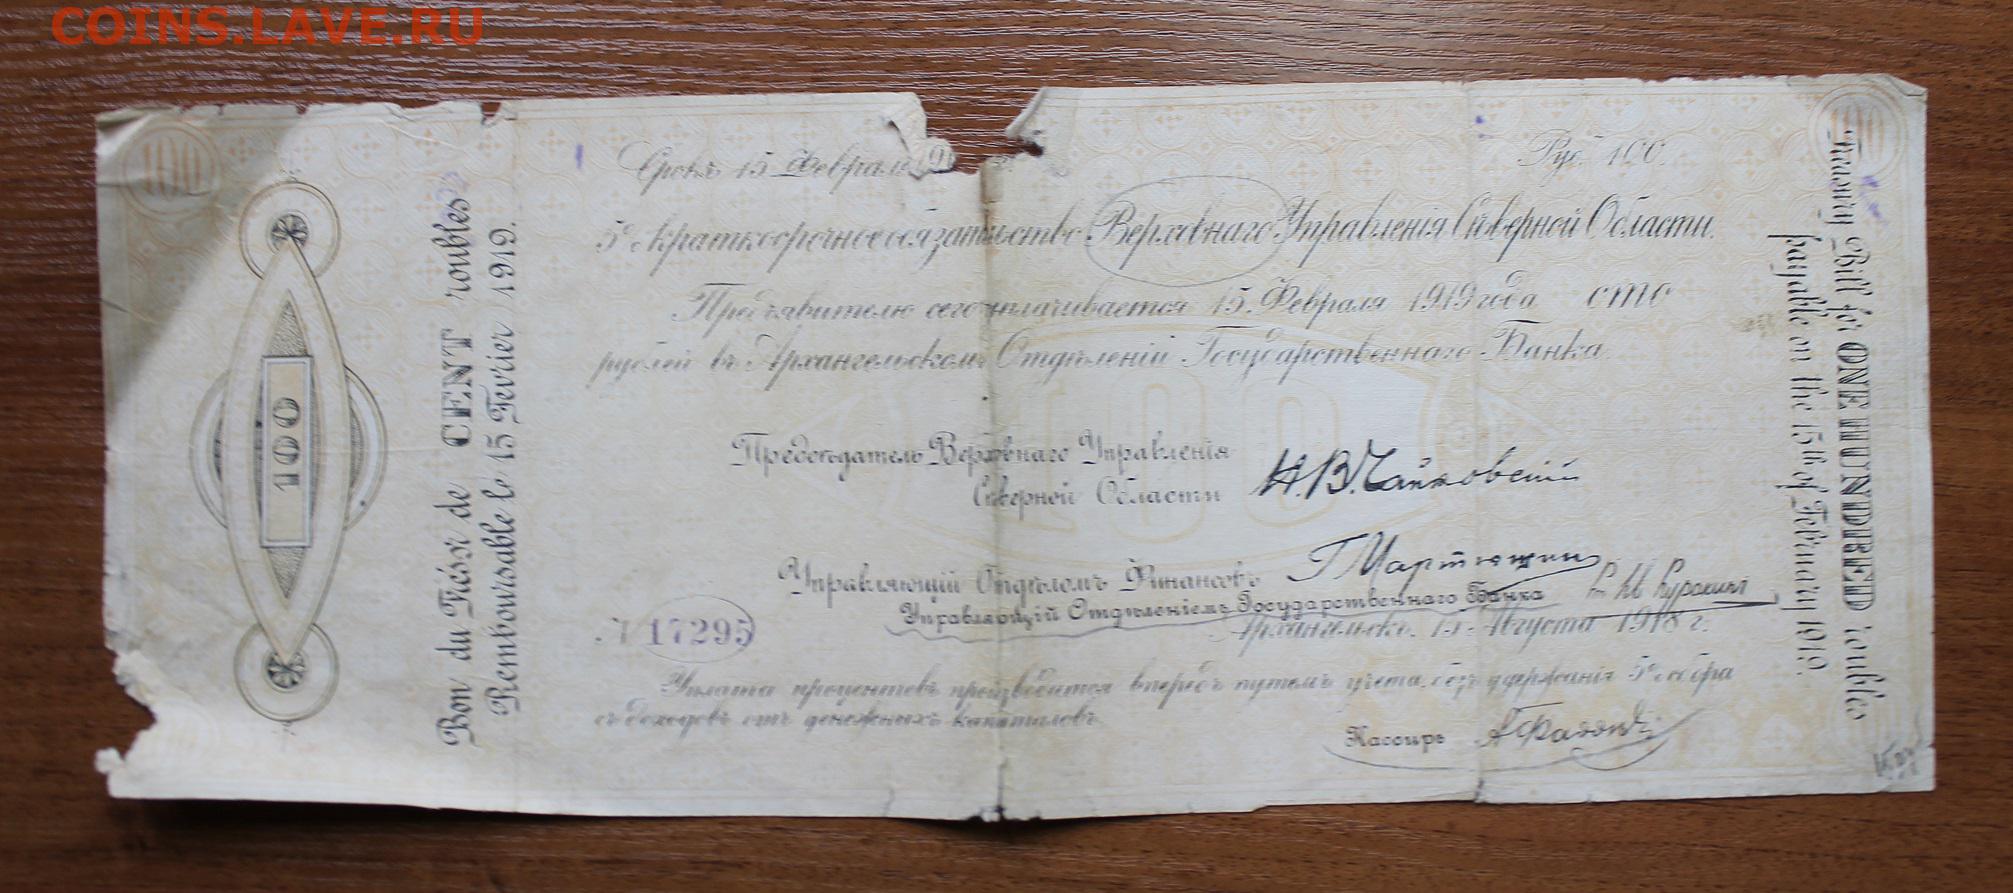 COINS.LAVE.RU
100
100
Срокъ 15 Февраля
Руб. 100.
5% краткосрочное обязательство Верховнаго Управленія Сѣверной Области.
Предъявителю сего уплачивается 15 Февраля 1919 года сто
рублей въ Архангельскомъ Отдѣленіи Государственнаго Банка.
100
Предсѣдатель Верховнаго Управленія
Сѣверной Области Н.В.Чайковскій
Управляющій Отдѣломъ Финансовъ Г Мартюшин
Управляющій Отдѣленіемъ Государственнаго Банка
№ 17295
Архангельскъ. 15 Августа 1918 г.
Уплата процентовъ производится впередъ путемъ учета, безъ удержанія 5% сбора
съ доходовъ отъ денежныхъ капиталовъ.
Кассиръ
100
Bon du Trésor de CENT roubles
Remboursable le 15 Fevrier 1919.
Treasury Bill for ONE HUNDRED roubles
payable on the 15th of February 1919.